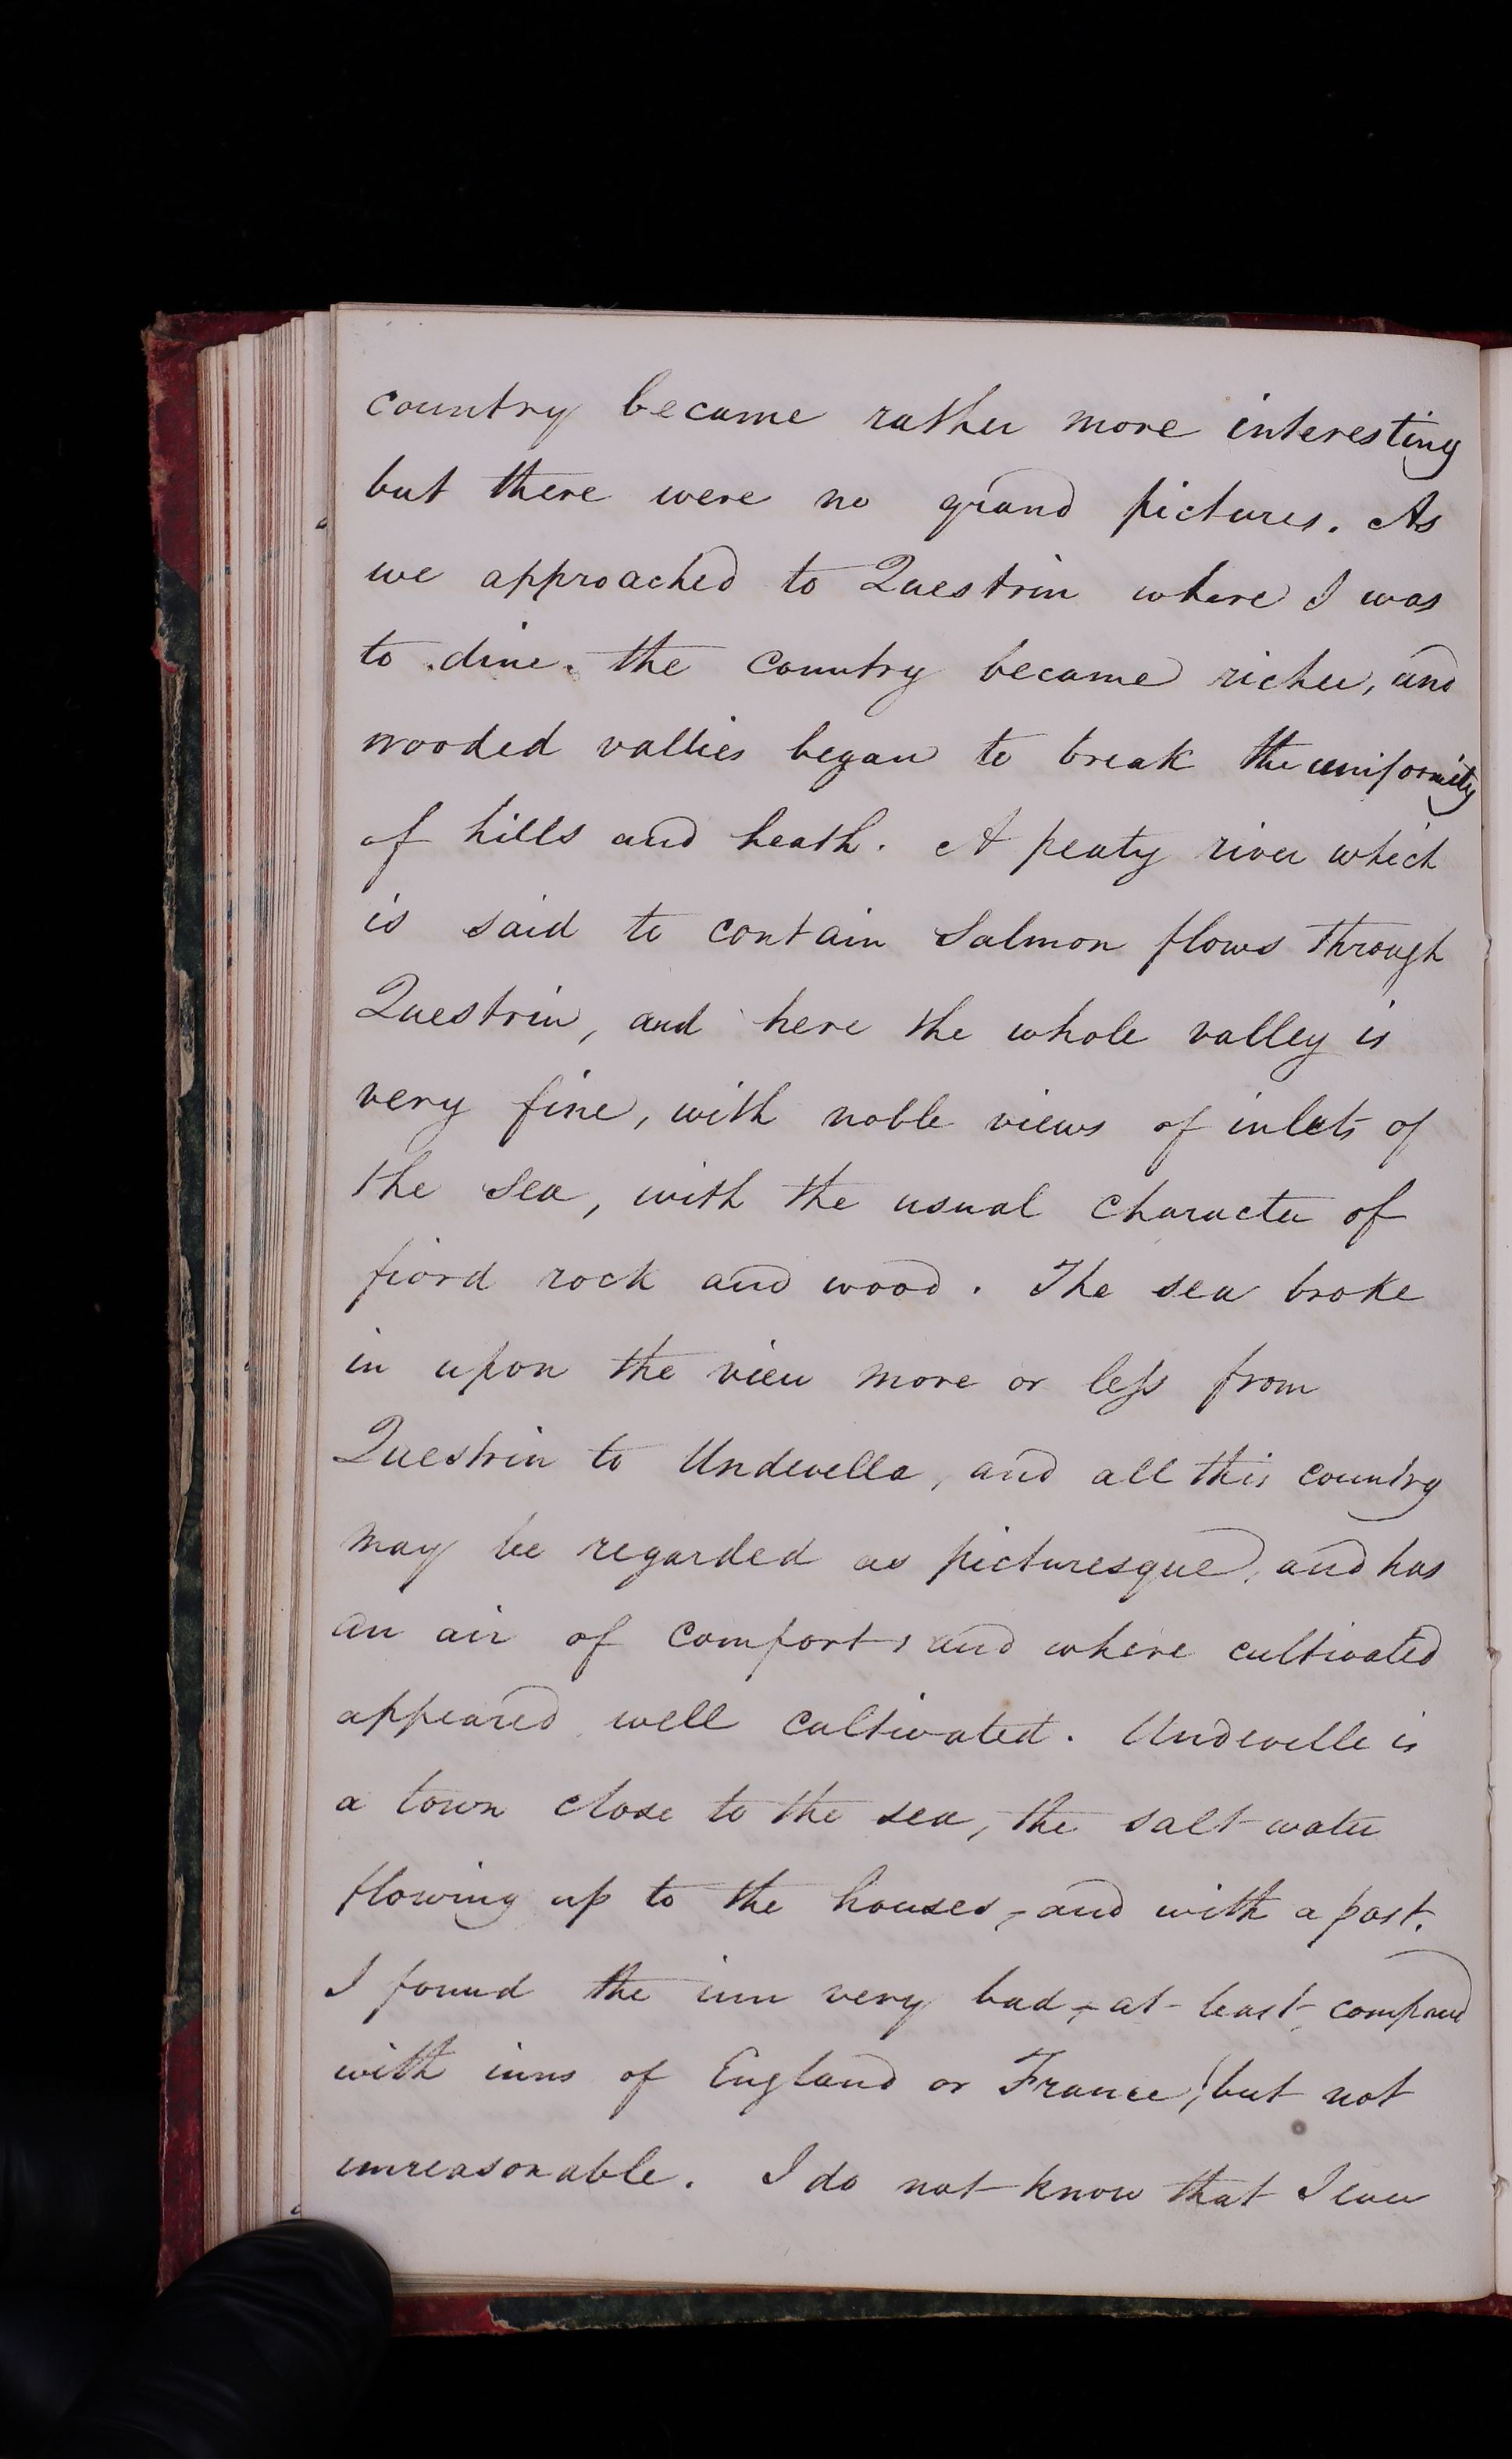 country became rather more interesting
but there were no grand pictures. As
we approached to Questrin where I was
to dine. the country became richer, and
wooded vallies began to break the uniformity
of hills and heath. A peaty river which
is said to contain Salmon flows through
Questrin, and here the whole valley is
very fine, with noble views of inlets of
the Sea, with the usual character of
fiord rock and wood. The sea broke
in upon the view more or less from
Questrin to Undevella, and all this country
may be regarded as picturesque, and has
an air of comfort, and where cultivated
appeared well cultivated. Undevelle is
a town close to the sea, the salt water
flowing up to the houses, – and with a port.
I found the inn very bad, – at least compared
with inns of England or France, but not
unreasonable. I do not know that I ever